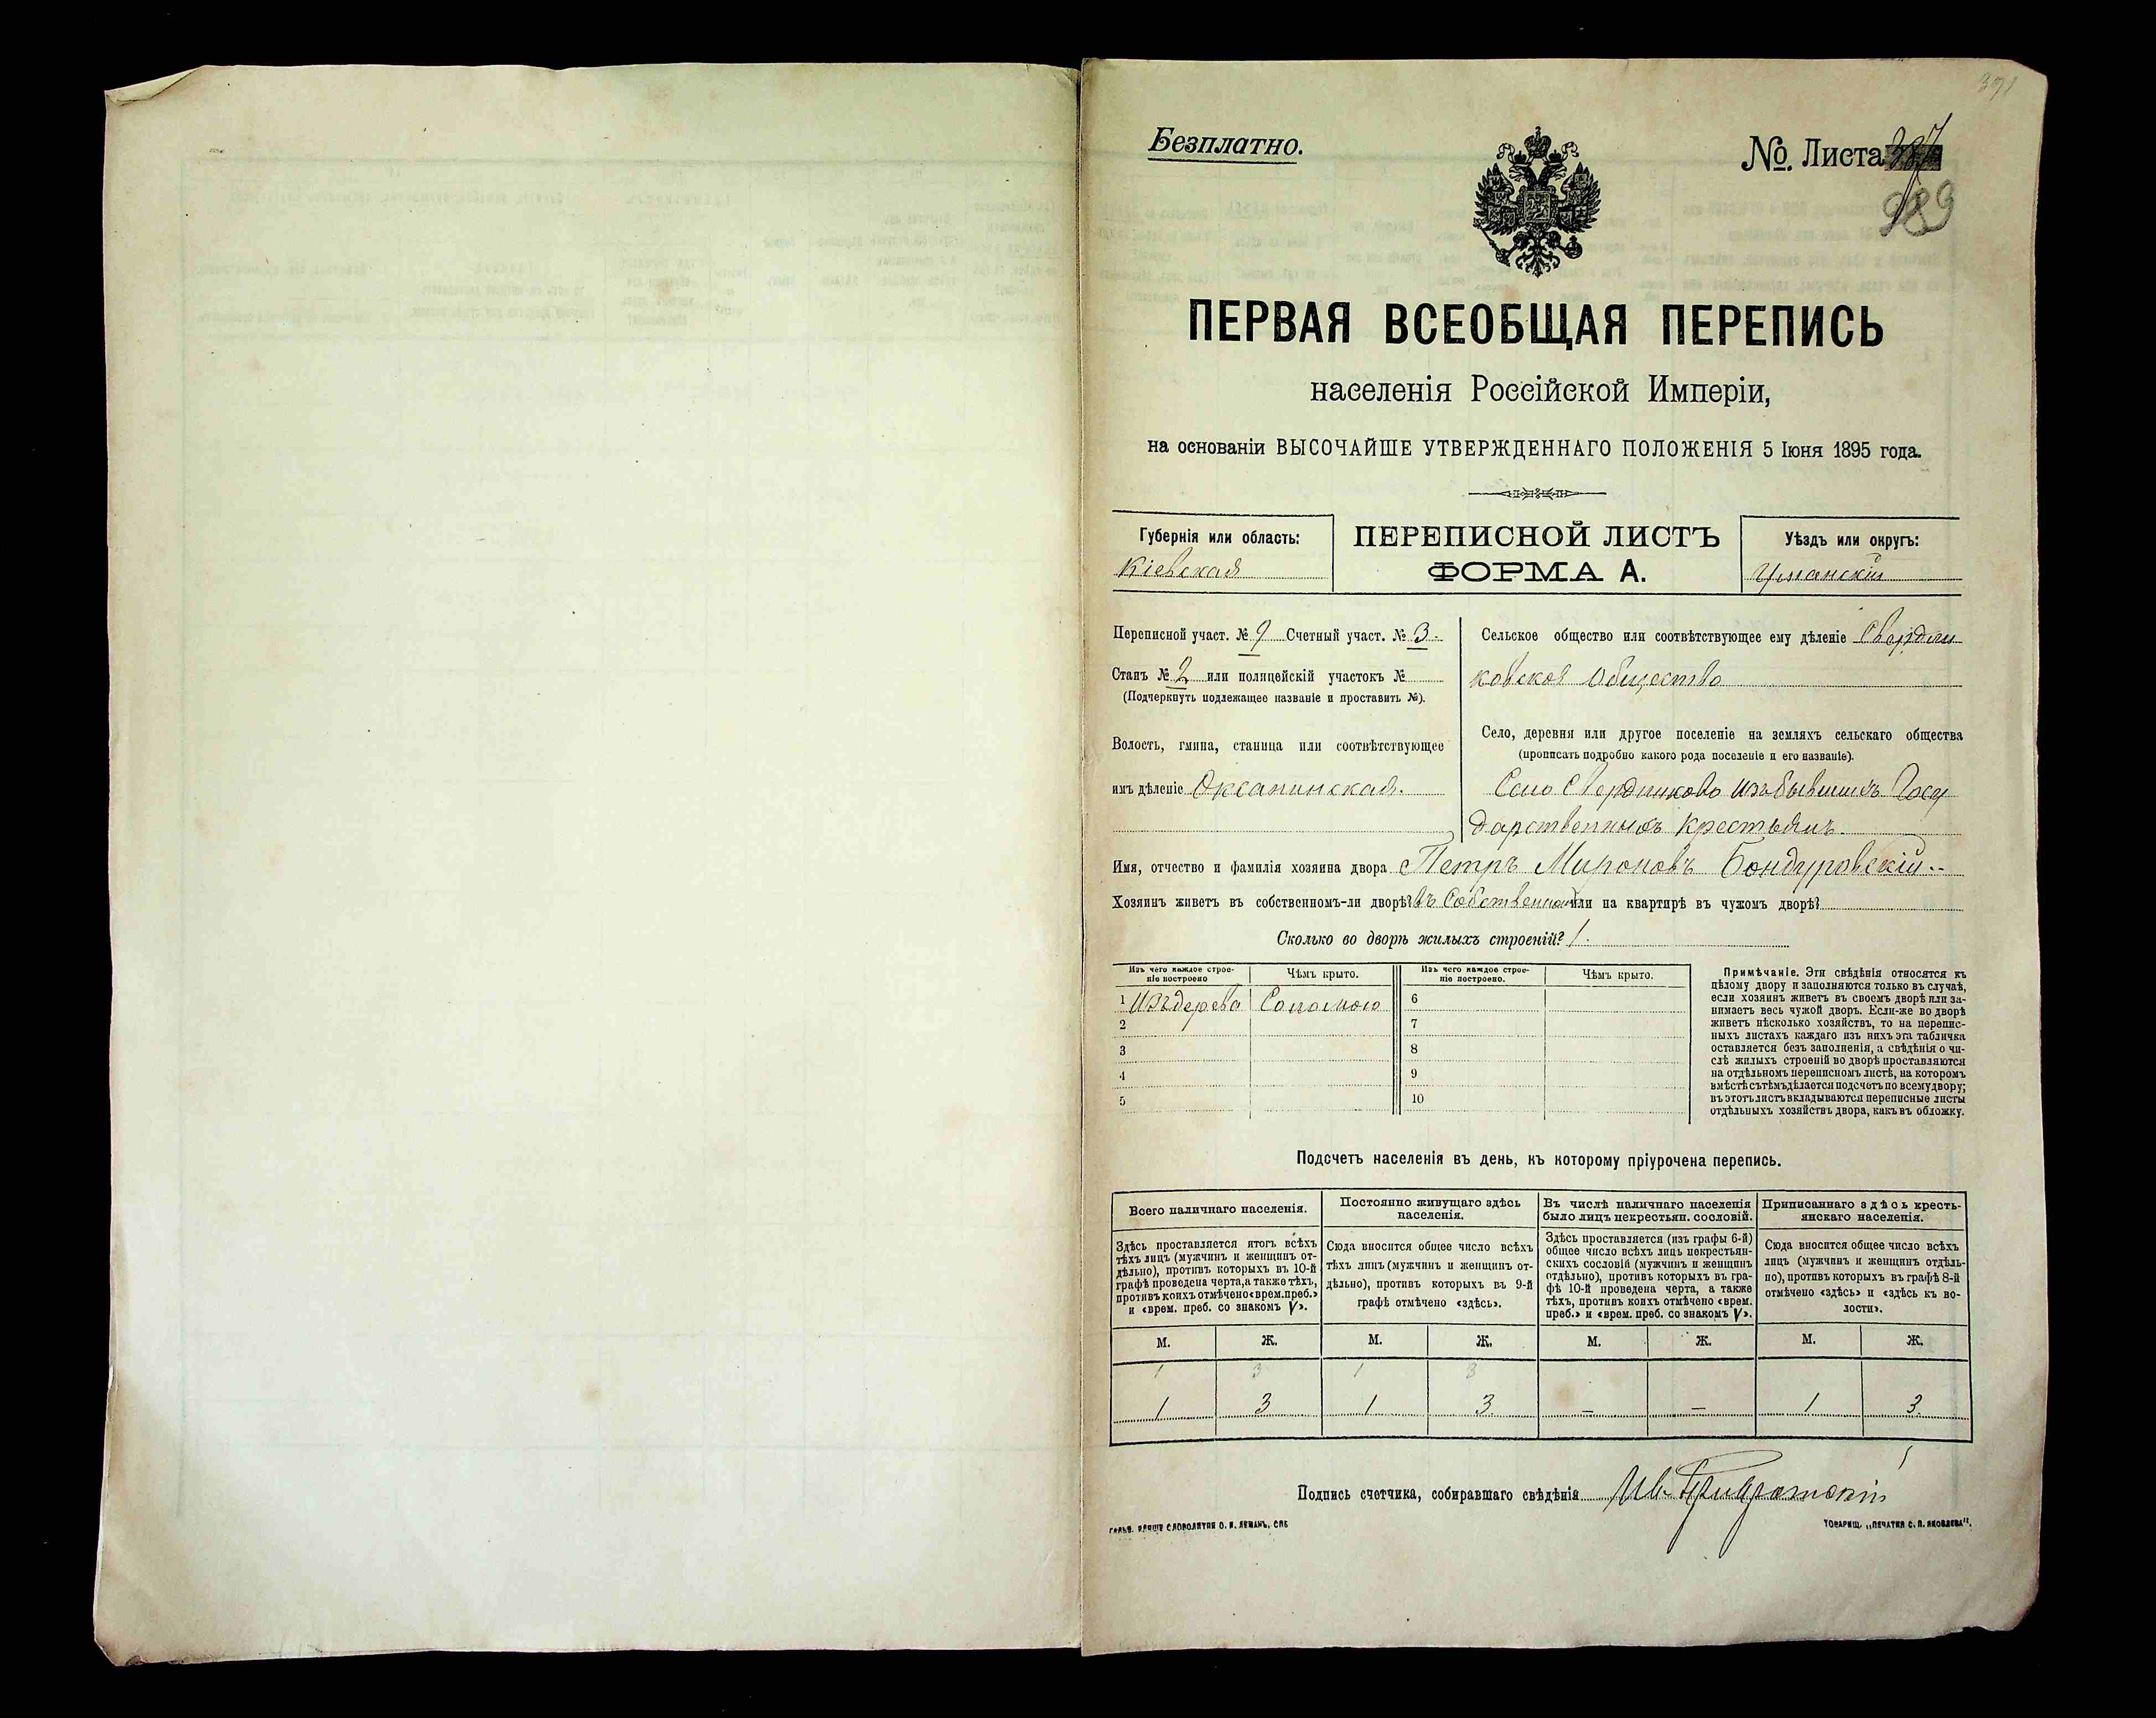 371
Безплатно.
№. Листа
989
ПЕРВАЯ ВСЕОБЩАЯ ПЕРЕПИСЬ
населенія Россійской Имперіи,
на основаніи ВЫСОЧАЙШЕ УТВЕРЖДЕННАГО ПОЛОЖЕНІЯ 5 Іюня 1895 года.
Губернія или область:
Кіевская
ПЕРЕПИСНОЙ ЛИСТЪ
ФОРМА А.
Уѣздъ или округъ:
Уманскій
Переписной участ. № 9 Счетный участ. № 3.
Станъ № 2 или полицейскій участокъ №
(Подчеркнуть подлежащее названіе и проставить №).
Волость, гмина, станица или соотвѣтствующее
имъ дѣленіе Оксанинская.
Сельское общество или соотвѣтствующее ему дѣленіе Свердли
ковское Общество
Село, деревня или другое поселеніе на земляхъ сельскаго общества
(прописать подробно какого рода поселеніе и его названіе).
Село Свердликово изъ бывшихъ Госу
дарственныхъ крестьянъ.
Имя, отчество и фамилія хозяина двора Петръ Мироновъ Бондуровскій
Хозяинъ живетъ въ собственномъ-ли дворѣ? въ Собственномъ или на квартирѣ въ чужомъ дворѣ?
Сколько во дворѣ жилыхъ строеній? 1.
Изъ чего каждое строе-
ніе построено
Чѣмъ крыто.
Изъ чего каждое строе-
ніе построено.
Чѣмъ крыто.
1 Изъ дерева Соломою 6
2 7
3 8
4 9
5 10
Примѣчаніе. Эти свѣдѣнія относятся къ
цѣлому двору и заполняются только въ случаѣ,
если хозяинъ живетъ въ своемъ дворѣ или за-
нимаетъ весь чужой дворъ. Если-же во дворѣ
живетъ нѣсколько хозяйствъ, то на перепис-
ныхъ листахъ каждаго изъ нихъ эта табличка
оставляется безъ заполненія, а свѣдѣнія о чи-
слѣ жилыхъ строеній во дворѣ проставляются
на отдѣльномъ переписномъ листѣ, на которомъ
вмѣстѣ съ тѣмъ дѣлается подсчетъ по всему двору;
въ этотъ листъ вкладываются переписные листы
отдѣльныхъ хозяйствъ двора, какъ въ обложку.
Подсчетъ населенія въ день, къ которому пріурочена перепись.
Всего наличнаго населенія.
Постоянно живущаго здѣсь
населенія.
Въ числѣ наличнаго населенія
было лицъ некрестьян. сословій.
Приписаннаго здѣсь кресть-
янскаго населенія.
Здѣсь проставляется итогъ всѣхъ
тѣхъ лицъ (мужчинъ и женщинъ от-
дѣльно), противъ которыхъ въ 10-й
графѣ проведена черта, а также тѣхъ,
противъ коихъ отмѣчено «врем. преб.»
и «врем. преб. со знакомъ V».
Сюда вносится общее число всѣхъ
тѣхъ лицъ (мужчинъ и женщинъ от-
дѣльно), противъ которыхъ въ 9-й
графѣ отмѣчено «здѣсь».
Здѣсь проставляется (изъ графы 6-й)
общее число всѣхъ лицъ некрестьян-
скихъ сословій (мужчинъ и женщинъ
отдѣльно), противъ которыхъ въ гра-
фѣ 10-й проведена черта, а также
тѣхъ, противъ коихъ отмѣчено «врем.
преб.» и «врем. преб. со знакомъ V».
Сюда вносится общее число всѣхъ
лицъ (мужчинъ и женщинъ отдѣль-
но), противъ которыхъ въ графѣ 8-й
отмѣчено «здѣсь» и «здѣсь къ во-
лости».
М. Ж. М. Ж. М. Ж. М. Ж.
1 3 1 3
1 3 1 3 — — 1 3
Подпись счетчика, собиравшаго свѣдѣнія
ТОВАРИЩ. „ПЕЧАТНЯ С. П. ЯКОВЛЕВА“.